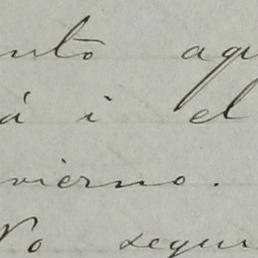 nto aq
á i el
vierno.
No segu